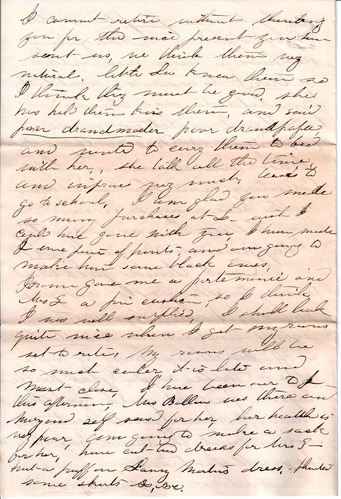 I cannot retire without thanking
you for the nice present you have
sent us, we think them very
natural, little Lu knew them so
I think they must be good, she
has held them kiss them, and said
poor drandmoder poor drandpa
and wanted to carry them to bed
with her, she talk all the time,
and improve very much,
go to school, I am glad you made
so many purchases at wish I
could have gone with you I have made
I one pair of pants, and am going to
make him some black ones,
gave me a porte monie and
Mrs a pin cushion, so I think
I was well supplied, I shall look
quite nice when I get my
set to rite, My rooms will be
so much it is late and
must close, I have been over to
this afternoon, Mrs was there and
self sewed for her, her health is
very poor am going to make a sack
for her, have cut two dresses for Mrs
put a puff on Fanny dress,
some skirts &c, &c.